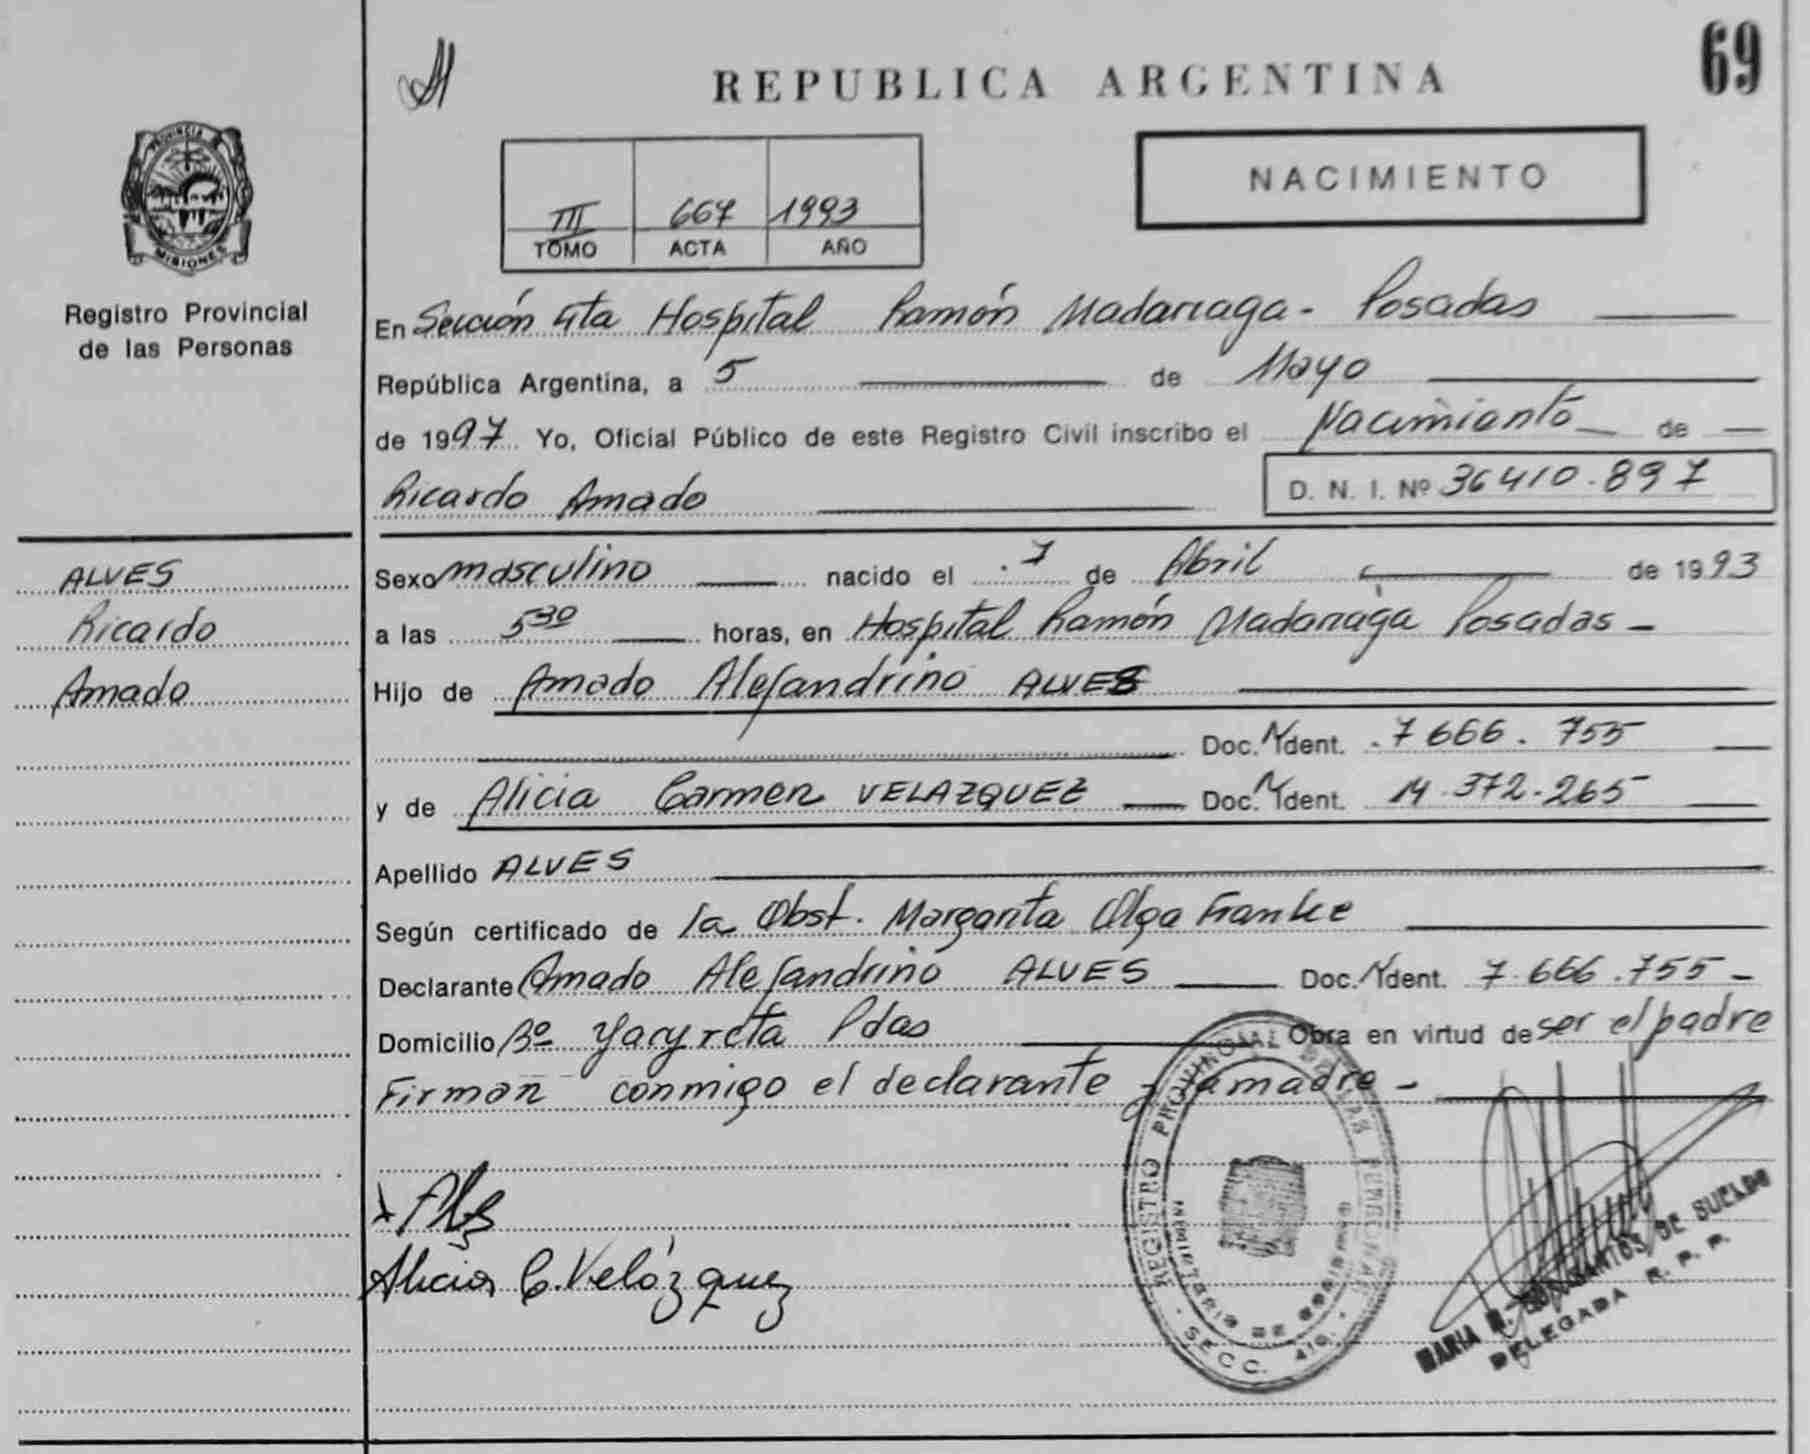 69
REPUBLICA ARGENTINA
NACIMIENTO
III 667 1993
TOMO ACTA AÑO
PROVINCIA DE
MISIONES
Registro Provincial
de las Personas
En Sección 4ta Hospital Ramón Madariaga - Posadas
República Argentina, a 5 de Mayo
de 1997 Yo, Oficial Público de este Registro Civil inscribo el Nacimiento de
Ricardo Amado
D. N. I. Nº 36410.897
ALVES
Ricardo
Amado
Sexo masculino nacido el 7 de Abril de 1993
a las 5 30 horas, en Hospital Ramón Madariaga Posadas -
Hijo de Amado Alejandrino ALVES
Doc. Ident. 7 666. 755
y de Alicia Carmen VELAZQUEZ Doc. Ident. 14 372.265
Apellido ALVES
Según certificado de la Obst. Margarita Olga Franke
Declarante Amado Alejandrino ALVES Doc. Ident. 7.666.755 -
Domicilio Bº Yacyreta Pdas Obra en virtud de ser el padre
Firman conmigo el declarante y la madre -
Alicia C. Velázquez
REGISTRO PROVINCIAL DE LAS PERSONAS
MINISTERIO DE GOBIERNO
SECC. 4ta.
MARIA DE SUELDO
DELEGADA R. P. P.